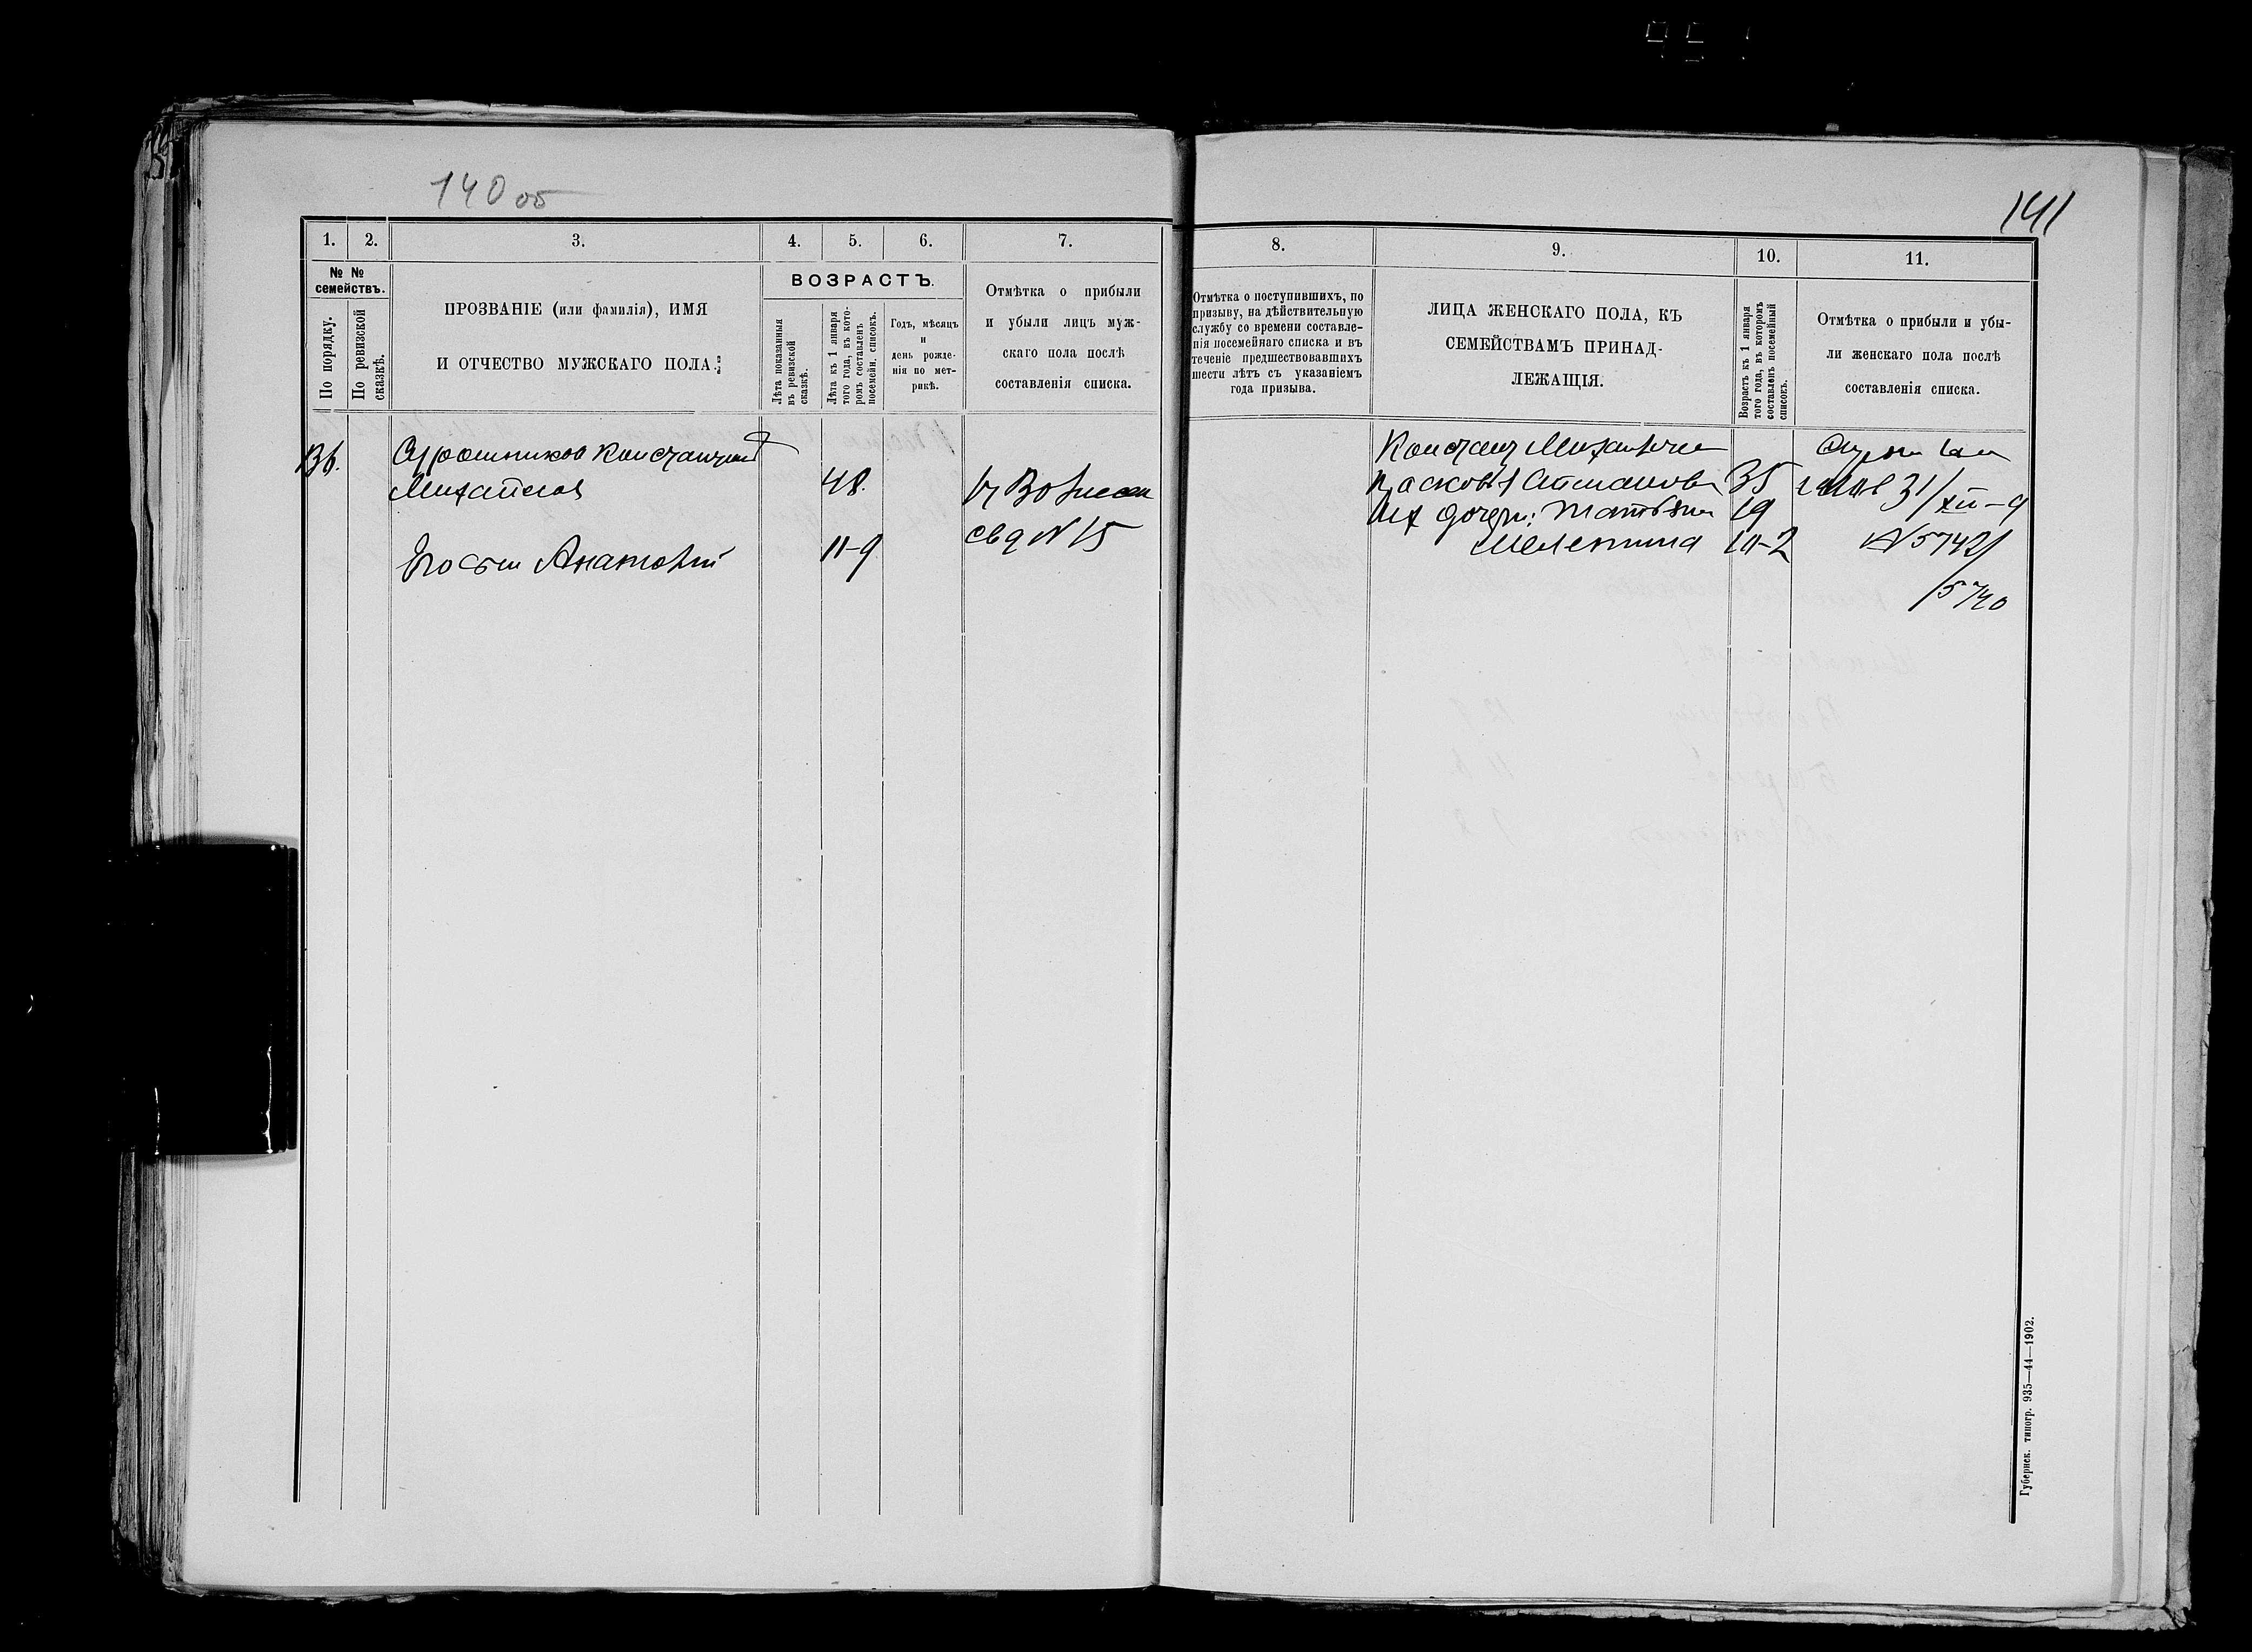 140 об
141
1.
2.
3.
4.
5.
6.
7.
8.
9.
10.
11.
№ №
семействъ.
По порядку.
По ревизской
сказкѣ.
ПРОЗВАНІЕ (или фамилія), ИМЯ
И ОТЧЕСТВО МУЖСКАГО ПОЛА.
ВОЗРАСТЪ.
Лѣта показанныя
въ ревизской
сказкѣ.
Лѣта къ 1 января
того года, въ кото-
ромъ составленъ
посемейн. списокъ.
Годъ, мѣсяцъ
и
день рожде-
нія по мет-
рикѣ.
Отмѣтка о прибыли
и убыли лицъ муж-
скаго пола послѣ
составленія списка.
Отмѣтка о поступившихъ, по
призыву, на дѣйствительную
службу со времени составле-
нія посемейнаго списка и въ
теченіе предшествовавшихъ
шести лѣтъ съ указаніемъ
года призыва.
ЛИЦА ЖЕНСКАГО ПОЛА, КЪ
СЕМЕЙСТВАМЪ ПРИНАД-
ЛЕЖАЩІЯ.
Возрастъ къ 1 января
того года, въ которомъ
составленъ посемейный
списокъ.
Отмѣтка о прибыли и убы-
ли женскаго пола послѣ
составленія списка.
136.
Константинъ
Михайловъ
48.
Его сынъ Анатолій
11-9
№ 15
35
Ихъ дочери: Татьяна 19
10-2
31/XII-9
№ 5742/
/5740
Губернск. типогр. 935—44—1902.